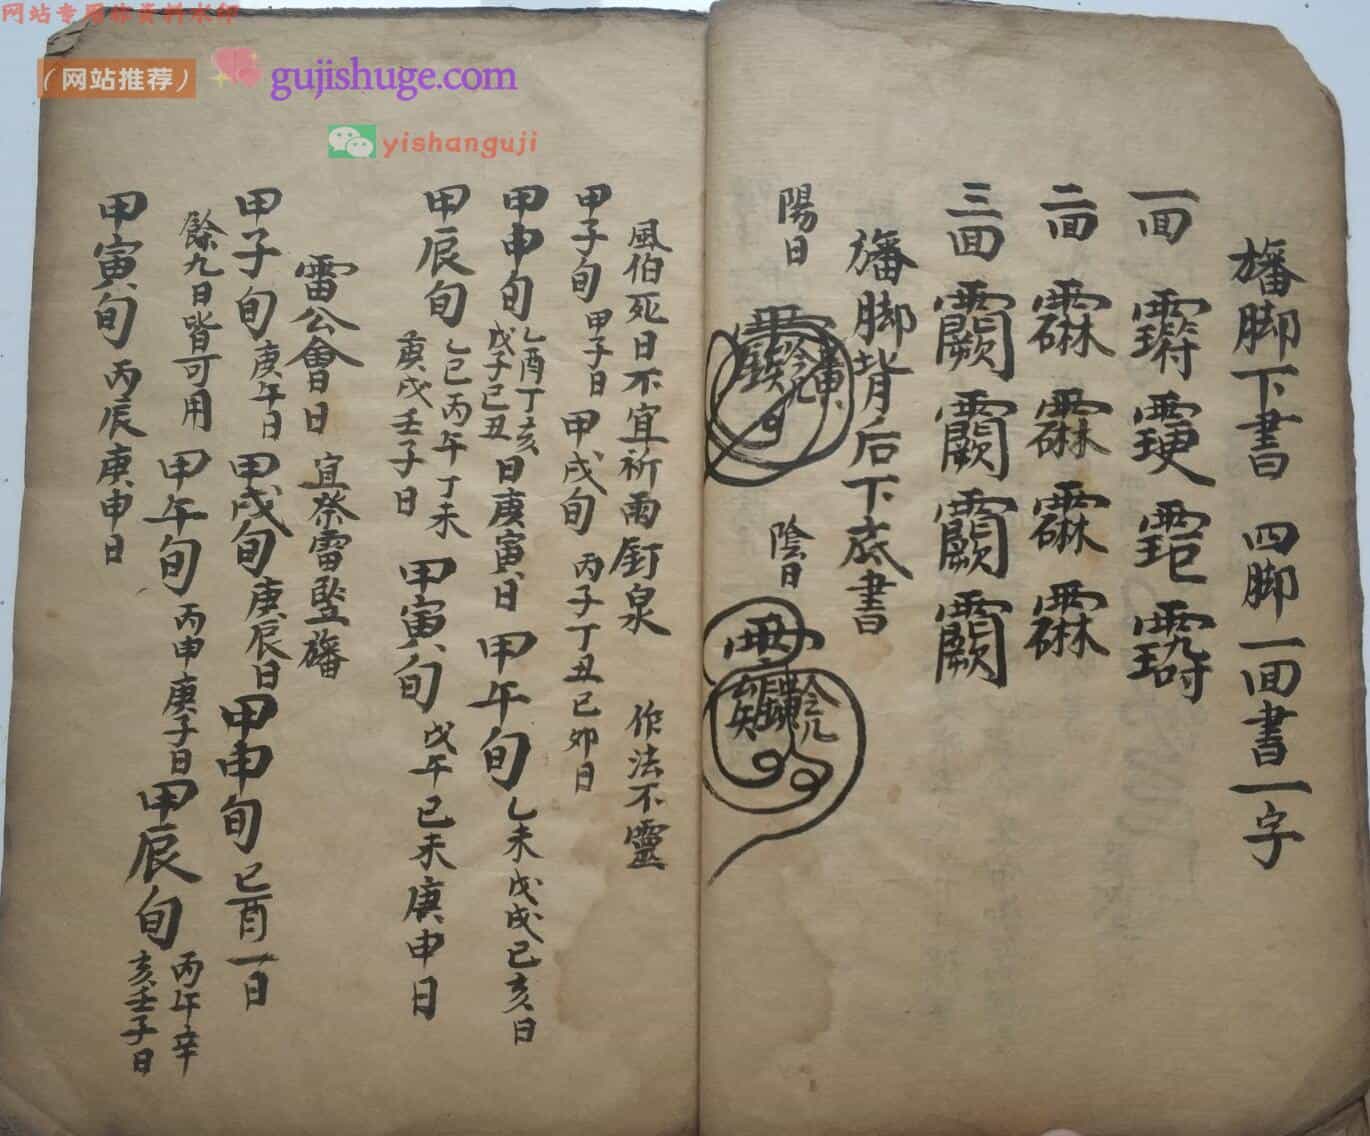 网站专用非资料水印
（网站推荐）
gujishuge.com
yishanguji
旛脚下書 四脚一面書一字
一面
二面 䨬 䨬 䨬 䨬
三面
旛脚背后下底書
陽日
陰日
風伯死日不宜祈雨釘泉 作法不靈
甲子旬 甲子日 甲戌旬 丙子丁丑己卯日
甲申旬 乙酉丁亥戊子己丑日庚寅日 甲午旬 乙未戊戌己亥日
甲辰旬 乙巳丙午丁未庚戌壬子日 甲寅旬 戊午己未庚申日
雷公會日 宜祭雷竪旛
甲子旬 庚午日 甲戌旬 庚辰日 甲申旬 己酉一日
餘九日皆可用 甲午旬 丙申庚子日 甲辰旬 丙午辛亥壬子日
甲寅旬 丙辰庚申日